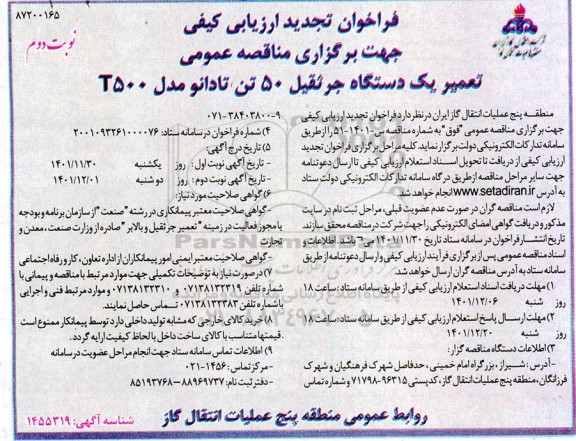 ۸۷۲۰۰۱۶۵
نوبت دوم
فراخوان تجدید ارزیابی کیفی
جهت برگزاری مناقصه عمومی
تعمیر یک دستگاه جرثقیل ۵۰ تن تادانو مدل T۵۰۰
منطقه پنج عملیات انتقال گاز ایران در نظر دارد فراخوان تجدید ارزیابی کیفی
جهت برگزاری مناقصه عمومی "فوق" به شماره مناقصه س ۱۴۰۱-۵۱ را از طریق
سامانه تدارکات الکترونیکی دولت برگزار نماید. کلیه مراحل برگزاری فراخوان تجدید
ارزیابی کیفی از دریافت تا تحویل اسناد استعلام ارزیابی کیفی تا ارسال دعوتنامه
جهت سایر مراحل مناقصه از طریق درگاه سامانه تدارکات الکترونیکی دولت ستاد
به آدرس www.setadiran.ir انجام خواهد شد.
لازم است مناقصه گران در صورت عدم عضویت قبلی، مراحل ثبت نام در سایت
مذکور و دریافت گواهی امضای الکترونیکی را جهت شرکت در مناقصه محقق سازند.
تاریخ انتشار فراخوان در سامانه ستاد تاریخ ۱۴۰۱/۱۱/۳۰ می باشد. اطلاعات و
اسناد مناقصه عمومی پس از برگزاری فرآیند ارزیابی کیفی و ارسال دعوتنامه از طریق
سامانه ستاد به آدرس مناقصه گران ارسال خواهد شد.
۱) مهلت دریافت اسناد استعلام ارزیابی کیفی از طریق سامانه ستاد: ساعت ۱۸
روز شنبه ۱۴۰۱/۱۲/۰۶
۲) مهلت ارسال پاسخ استعلام ارزیابی کیفی از طریق سامانه ستاد: ساعت ۱۸
روز شنبه ۱۴۰۱/۱۲/۲۰
۳) اطلاعات دستگاه مناقصه گزار:
- آدرس: شیراز، بزرگراه امام خمینی، حدفاصل شهرک فرهنگیان و شهرک
فرزانگان، منطقه پنج عملیات انتقال گاز، کدپستی ۹۶۳۱۵-۷۱۷۹۸ و شماره تماس
۹-۳۸۴۰۳۸۰۰-۰۷۱
۴) شماره فراخوان در سامانه ستاد: ۲۰۰۱۰۹۳۲۶۱۰۰۰۰۷۶
۵) تاریخ درج آگهی:
- تاریخ آگهی نوبت اول: روز یکشنبه ۱۴۰۱/۱۱/۳۰
- تاریخ آگهی نوبت دوم: روز دوشنبه ۱۴۰۱/۱۲/۰۱
۶) گواهی صلاحیت مورد نیاز:
- گواهی صلاحیت معتبر پیمانکاری در رشته "صنعت" از سازمان برنامه و بودجه
یا مجوز فعالیت در زمینه "تعمیر جرثقیل و بالابر" صادره از وزارت صنعت، معدن و
تجارت
- گواهی صلاحیت معتبر ایمنی امور پیمانکاران از اداره تعاون، کار و رفاه اجتماعی
۷) در صورت نیاز به توضیحات تکمیلی جهت موارد مرتبط با مناقصه و پیمانی با
شماره تلفن ۰۷۱۳۸۱۳۲۳۱۹ و ۰۷۱۳۸۱۳۲۳۱۰ و موارد مرتبط فنی و اجرایی
با شماره تلفن ۰۷۱۳۸۱۳۲۳۸۳ تماس حاصل نمایند.
۸) خرید کالای خارجی که مشابه تولید داخلی دارد توسط پیمانکار ممنوع است
. قیمتها متناسب با کالای ساخت داخل با لحاظ کیفیت ارایه گردد.
۹) اطلاعات تماس سامانه ستاد جهت انجام مراحل عضویت در سامانه
- مرکز تماس: ۱۴۵۶-۰۲۱
- دفتر ثبت نام: ۸۸۹۶۹۷۳۷ - ۸۵۱۹۳۷۶۸
روابط عمومی منطقه پنج عملیات انتقال گاز
شناسه آگهی: ۱۴۵۵۳۱۹